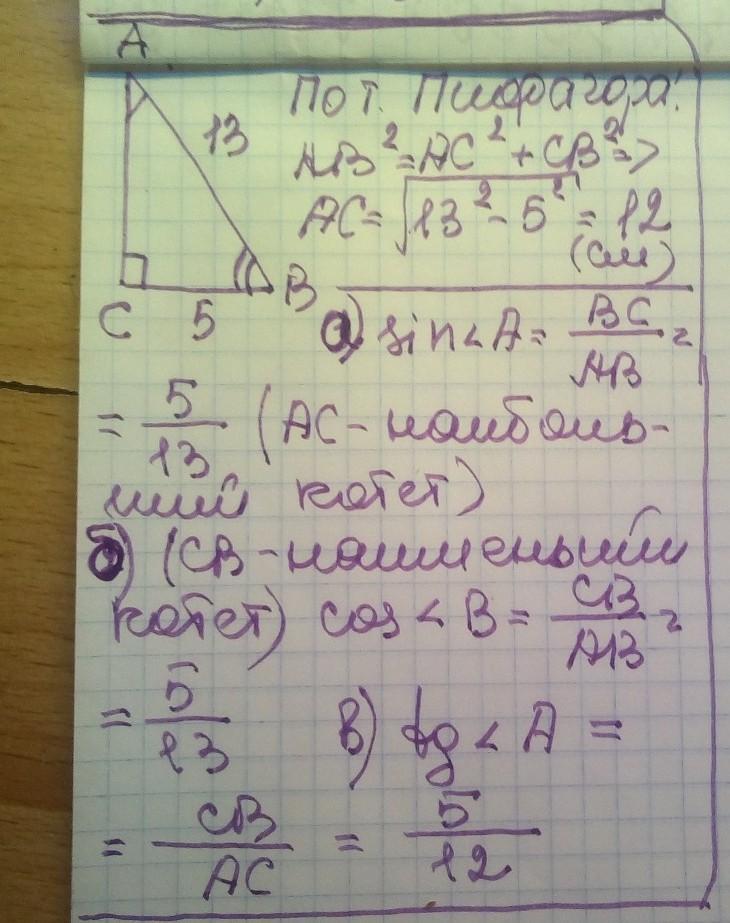 A
13
C 5 B
По т. Пифагора:
AB² = AC² + CB² =>
AC = √13² - 5² = 12
(см)
а) sin < A = BC/AB =
= 5/13 (AC - наиболь-
ший катет)
б) (CB - наименьший
катет) cos < B = CB/AB =
= 5/13 в) tg < A =
= CB/AC = 5/12